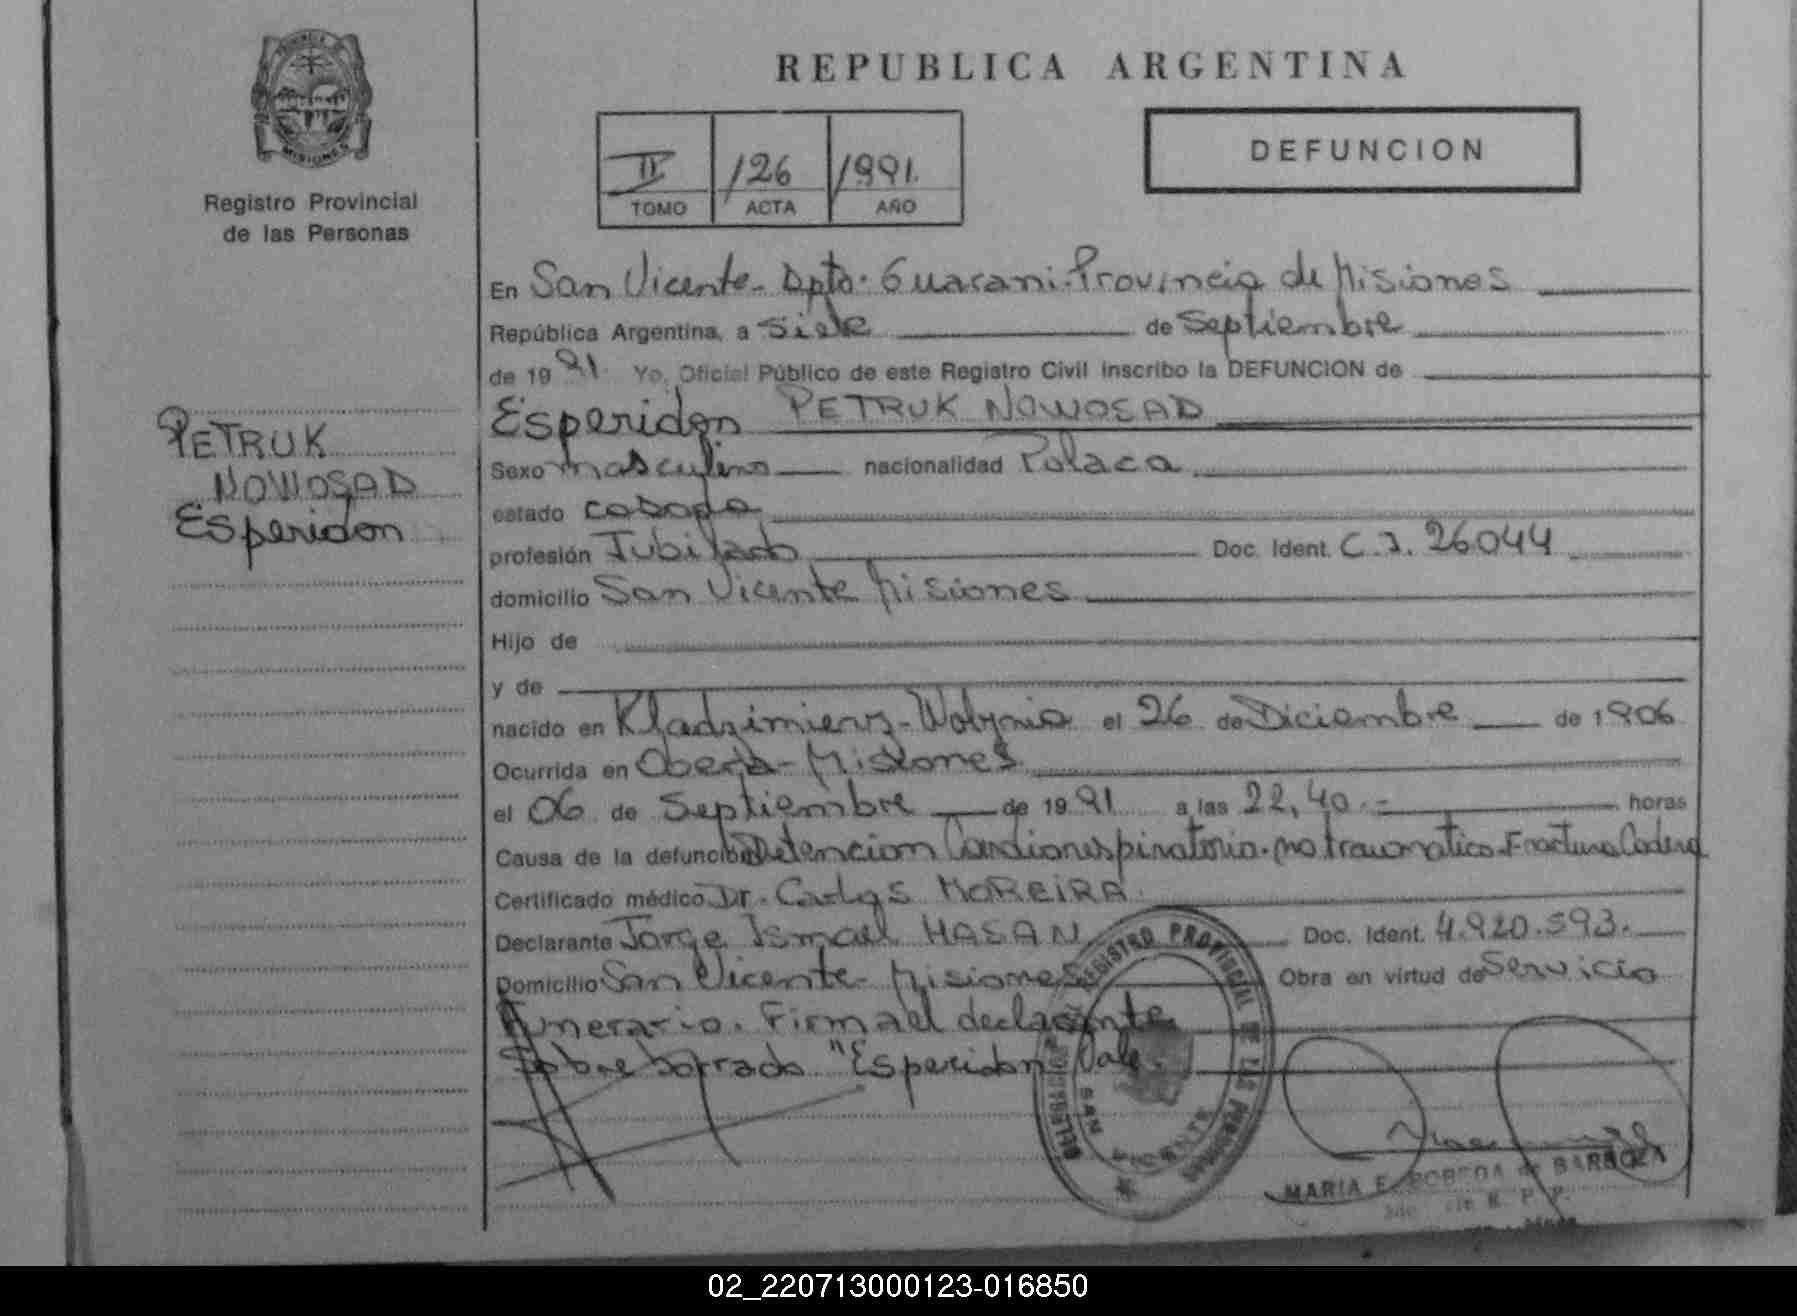 PROVINCIA DE
MISIONES
Registro Provincial
de las Personas
PETRUK
NOWOSAD
Esperidon
REPUBLICA ARGENTINA
II 126 1991.
TOMO ACTA AÑO
DEFUNCION
En San Vicente- Dpto. Guarani. Provincia de Misiones
República Argentina, a Siete de Septiembre
de 1991. Yo, Oficial Público de este Registro Civil inscribo la DEFUNCION de
Esperidon PETRUK NOWOSAD
Sexo masculino nacionalidad Polaca
estado casado
profesión Jubilado Doc. Ident. C.I. 26044
domicilio San Vicente Misiones
Hijo de
y de
nacido en Kladzimierz-Wolynia el 26 de Diciembre de 1906
Ocurrida en Oberá-Misiones
el 06 de Septiembre de 1991 a las 22,40.- horas
Causa de la defunción Detencion Cardiorespiratoria. no traumatico. Fractura Cadera
Certificado médico Dr. Carlos MOREIRA.
Declarante Jorge Ismael HASAN Doc. Ident. 4.920.593.
Domicilio San Vicente- Misiones Obra en virtud de Servicio
Funerario. Firma el declarante
Sobre borrado "Esperidon Vale.
REGISTRO PROVINCIAL DE LAS PERSONAS
SAN VICENTE
MARIA E. POBEDA de BARBOZA
02_220713000123-016850